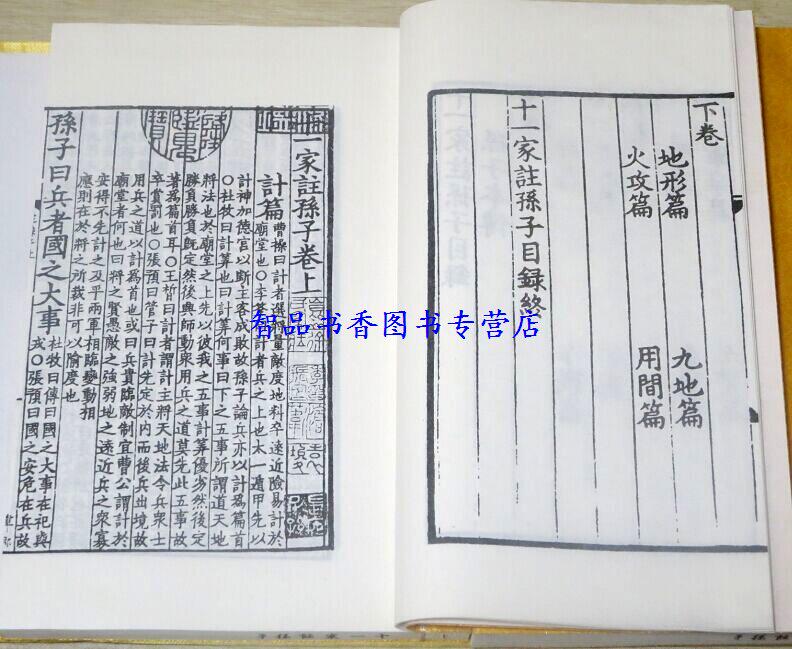 下卷
地形篇 九地篇
火攻篇 用間篇
十一家註孫子目録終
十一家註孫子卷上
計篇
曹操曰計者選將量敵度地料卒遠近險易計於
廟堂也〇李筌曰計者兵之上也太一遁甲先以
計神加德宮以斷主客成敗故孫子論兵亦以計爲篇首
〇杜牧曰計算也曰計算何事曰下之五事所謂道天地
將法也於廟堂之上先以彼我之五事計算優劣然後定
勝負勝負既定然後興師動衆用兵之道莫先此五事故
著爲篇首耳〇王晳曰計者謂計主將天地法令兵衆士
卒賞罰也〇張預曰管子曰計先定於内而後兵出境故
用兵之道以計爲首也或曰兵貴臨敵制宜曹公謂計於
廟堂者何也曰將之賢愚敵之強弱地之遠近兵之衆寡
安得不先計之及乎兩軍相臨變動相
應則在於將之所裁非可以隃度也
孫子曰兵者國之大事
杜牧曰傳曰國之大事在祀與
戎〇張預曰國之安危在兵故
智品书香图书专营店